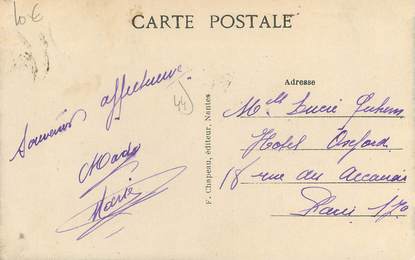 10€
CARTE POSTALE
44
Souvenir affectueux
Mado
Marie
F. Chapeau, éditeur, Nantes
Adresse
Mlle Lucie
Hotel Oxford
18 rue des Acacias
Paris 17e